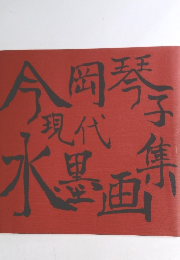 今岡琴子
現代
水墨画集